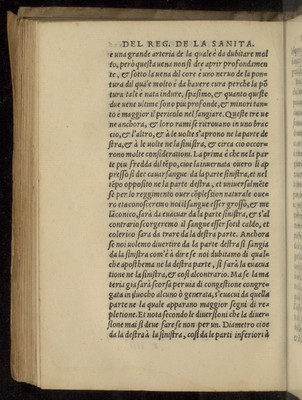 DEL REG. DE LA SANITA.
e una grande arteria de la quale è da dubitare mol
to, però questa uena non si dee aprir profondamen
te, & sotto la uena dil core è uno neruo de la pon-
tura dil quale molto è da hauere cura perche la põ
tura tale è nata indure, spasimo, & quanto queste
due uene ultime sono piu profonde, & minori tan-
to è maggior il pericolo nel sangiare. Queste tre ue
ne anchora, & loro rami se ritrouano in uno brac
cio, & l'altro, & à le uolte s'aprono ne la parte de
stra, & à le uolte ne la sinistra, & circa cio occor-
rono molte considerationi. La prima è che ne la par
te piu fredda dil tẽpo, cioè la inuernata ouero li ap
presso si dee cauer sangue da la parte sinistra, et nel
tẽpo opposito ne la parte destra, et uniuersalmẽte
se per lo reggimento ouer cõplession naturale oue
ro etia conosceremo noi il sangue esser grosso, & me
lãconico, sarà da euacuar da la parte sinistra, & s'al
contrario scorgeremo il sangue esser sotil caldo, et
colerico sara da trare da la destra parte. Anchora
se noi uolemo diuertire da la parte destra si sangia
da la sinistra com'è à dire se noi dubitamo di qual-
che aposthema ne la destra parte, si farà la euacua
tione ne la sinistra, & cosi alcontrario. Ma se la ma
teria gia sarà scorsa per uia di congestione congre-
gata in luocho alcuno ò generata, s'euacui da quella
parte ne la quale apparano maggior segni di re-
pletione. Et nota secondo le diuersioni che la diuer-
sione mai si deue fare se non per un. Diametro cioe
da la destra à la sinistra, cosi da le parti inferiori à